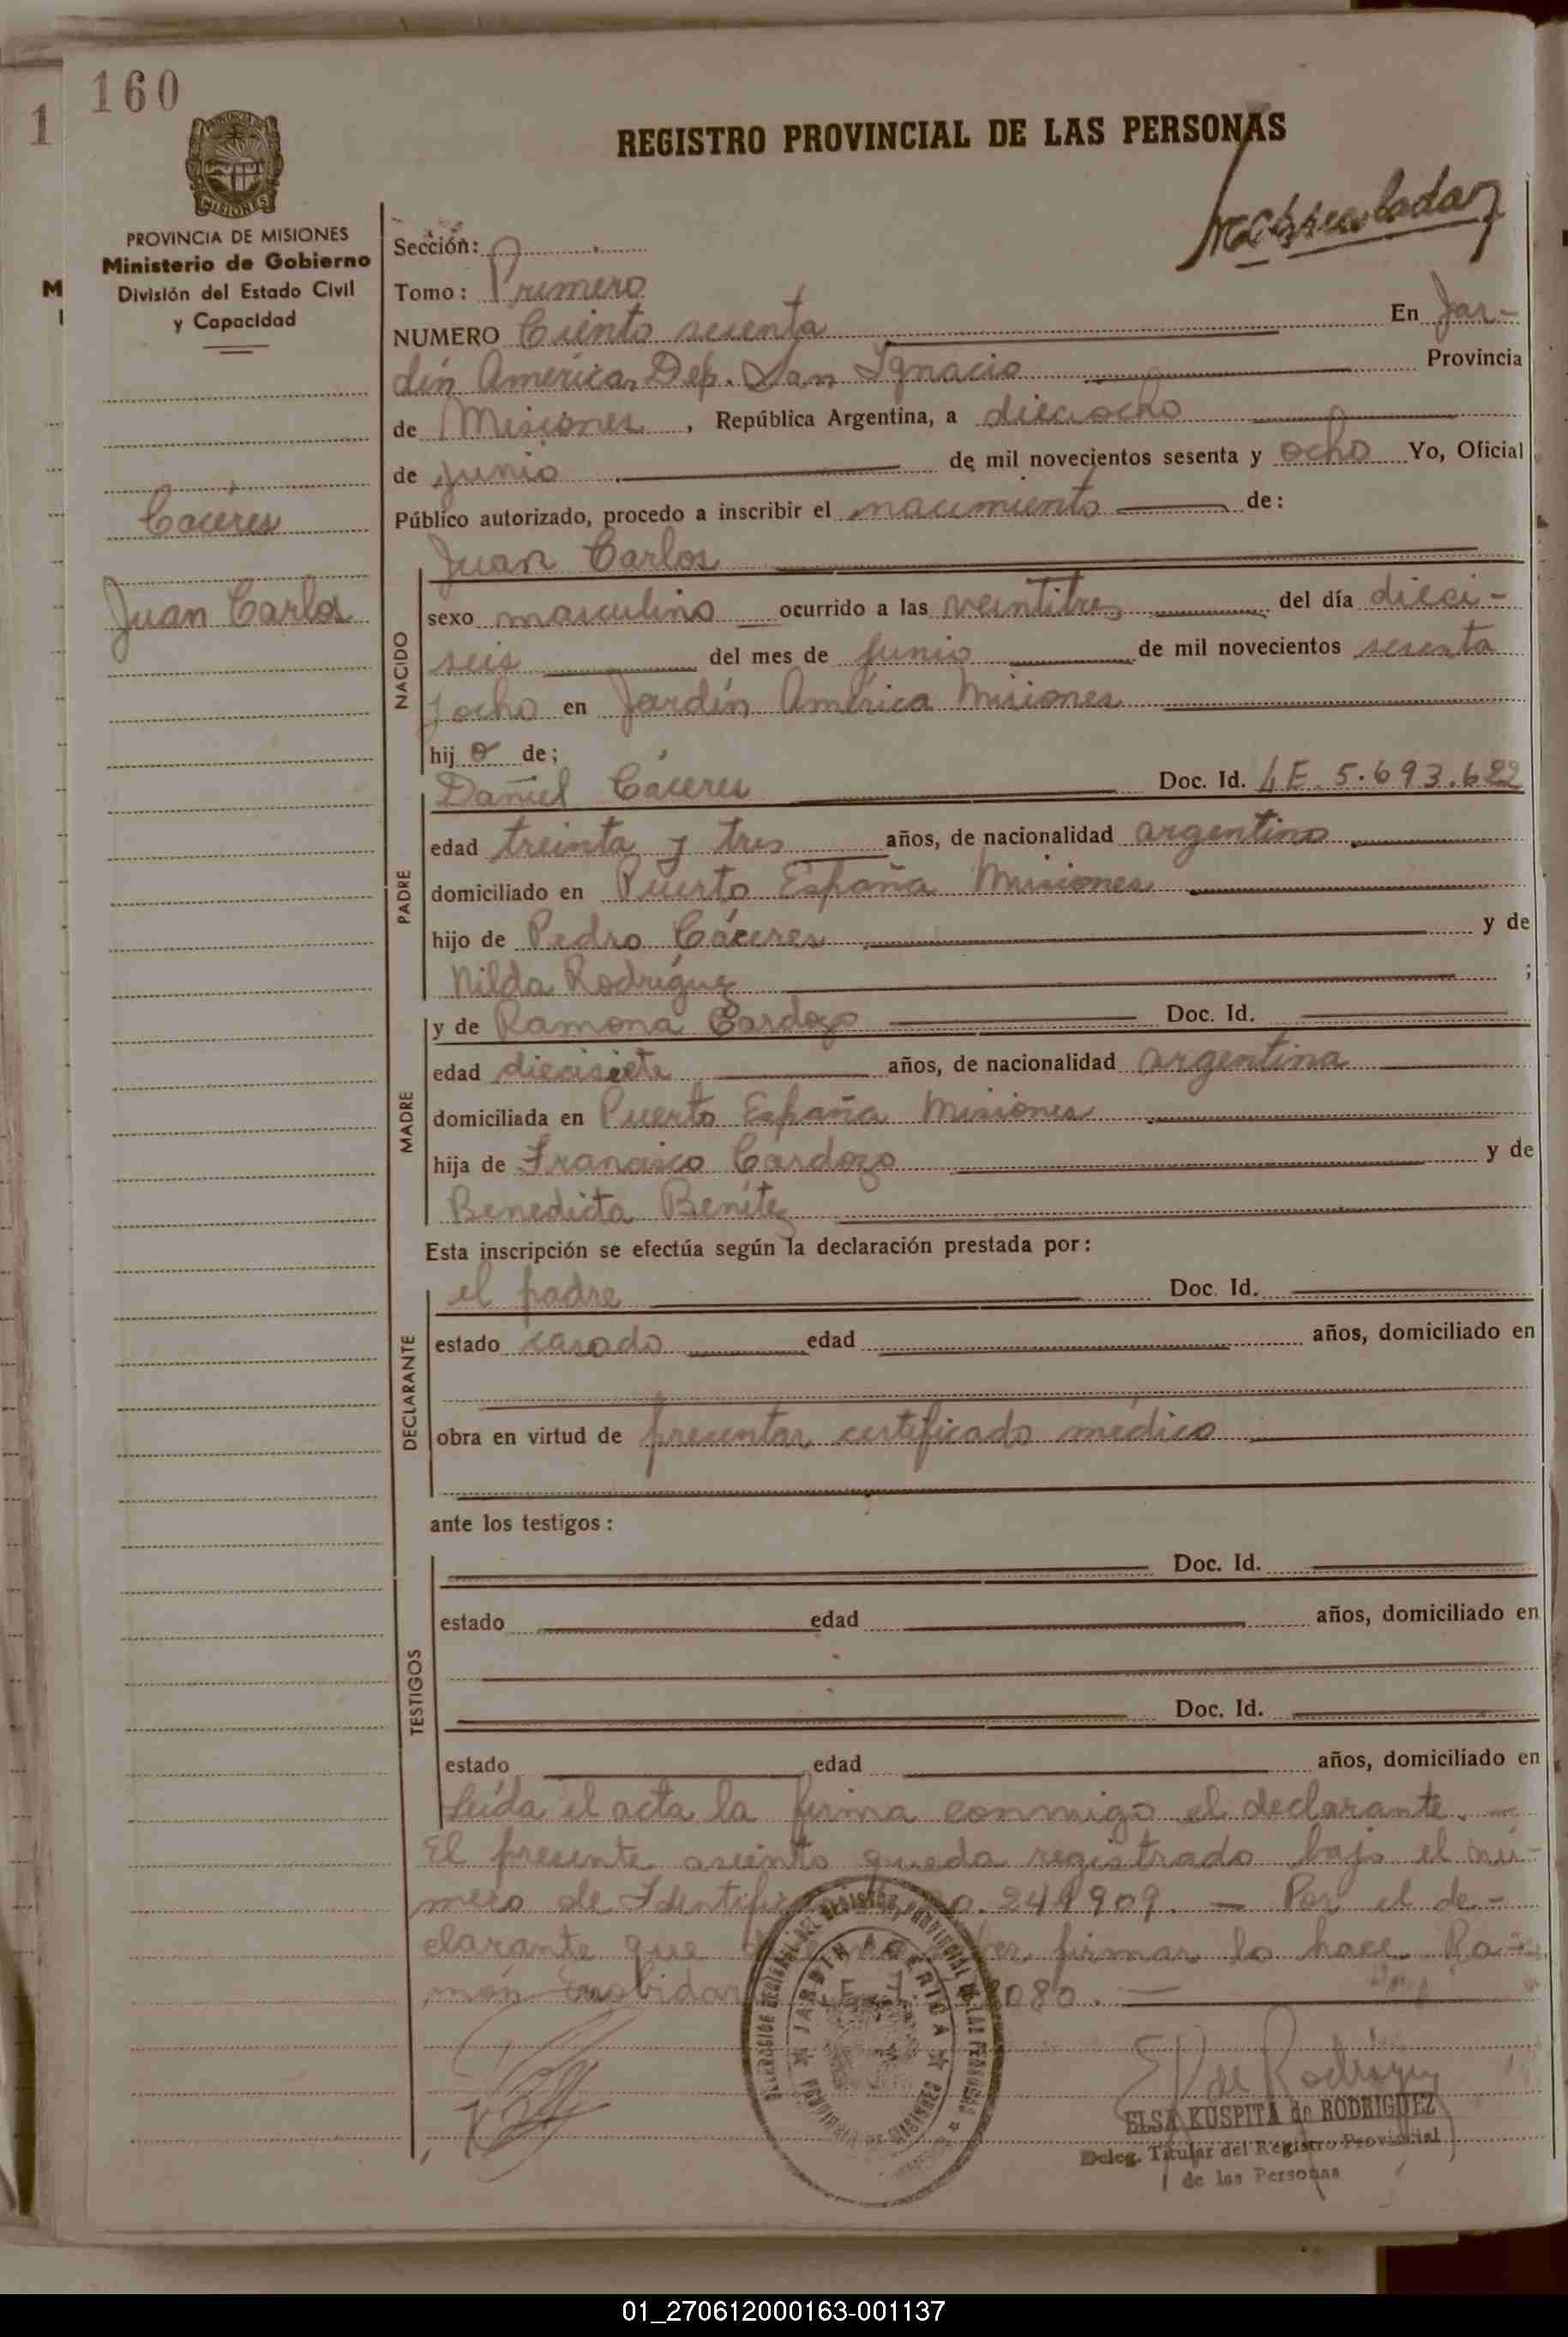 160
1
REGISTRO PROVINCIAL DE LAS PERSONAS
PROVINCIA DE MISIONES
Ministerio de Gobierno
División del Estado Civil
y Capacidad
Cáceres
Juan Carlos
Sección:
Tomo: Primero
NUMERO Ciento sesenta En Jar-
dín América, Dep. San Ignacio Provincia
de Misiones, República Argentina, a dieciocho
de junio de mil novecientos sesenta y ocho Yo, Oficial
Público autorizado, procedo a inscribir el nacimiento de:
NACIDO
Juan Carlos
sexo masculino ocurrido a las veintitres del día dieci-
seis del mes de junio de mil novecientos sesenta
y ocho en Jardín América Misiones
hijo de;
PADRE
Daniel Cáceres Doc. Id. LE 5.693.622
edad treinta y tres años, de nacionalidad argentino
domiciliado en Puerto España Misiones
hijo de Pedro Cáceres y de
Nilda Rodríguez ;
MADRE
y de Ramona Cardozo Doc. Id.
edad diecisiete años, de nacionalidad argentina
domiciliada en Puerto España Misiones
hija de Francisco Cardozo y de
Benedicta Benítez
Esta inscripción se efectúa según la declaración prestada por:
DECLARANTE
el padre Doc. Id.
estado casado edad años, domiciliado en
obra en virtud de presentar certificado médico
ante los testigos:
TESTIGOS
Doc. Id.
estado edad años, domiciliado en
Doc. Id.
estado edad años, domiciliado en
Leída el acta la firma conmigo el declarante. -
El presente asiento queda registrado bajo el nú-
mero de 241909. - Por el de-
clarante que firmar lo hace Ra-
món 080. -
JARDIN AMERICA
E V de Rodríguez
ELSA KUSPITA de RODRIGUEZ
Deleg. Titular del Registro Provincial
de las Personas
01_270612000163-001137